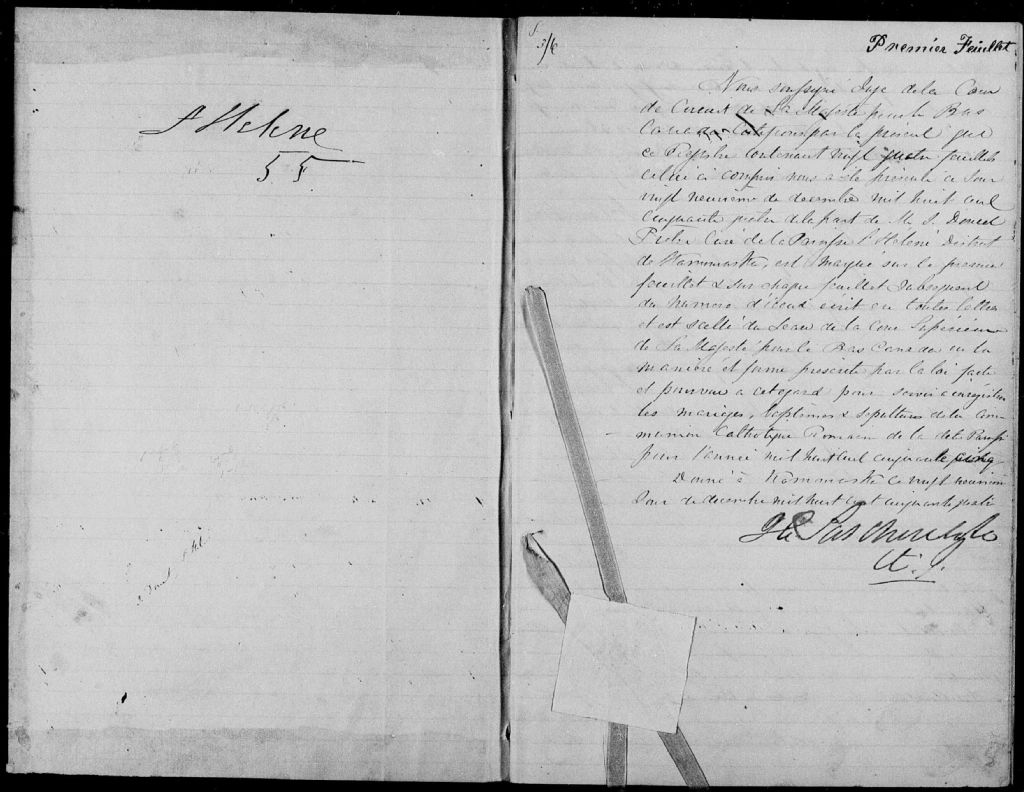 St Helene
55
Premier Feuillet
Nous soussigné Juge de la Cour
de Circuit de Sa Majesté pour le Bas
Canada Certifions par la présente que
ce Registre contenant vingt quatre feuillets
celui ci compris nous a été présenté ce Jour
vingt neuvieme de decembre mil huit cent
cinquante quatre de la part de M
Prêtre Curé de la Paroisse St Helene District
de Kamouraska, est marqué sur le premier
feuillet & sur chaque feuillet subsequent
du numero écrit en toutes lettres
et est scellé du Sceau de la Cour Supérieure
de Sa Majesté pour le Bas Canada en la
maniere et forme prescrite par la loi faite
et pourvue a cet egard pour servir a enregistrer
les mariages, baptêmes & sepultures de la com
munion Catholique Romaine de la dite Paroisse
pour l'année mil huit cent cinquante cinq
Donné à Kamouraska ce vingt neuvieme
Jour de decembre mil huit cent cinquante quatre